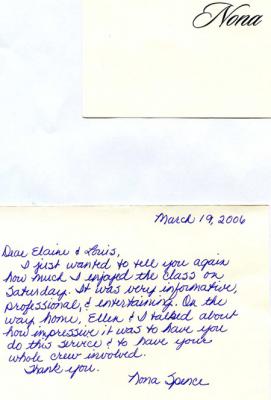 Nona
March 19, 2006
Dear Elaine & Louis,
I just wanted to tell you again
how much I enjoyed the class on
Saturday. It was very informative,
professional, & entertaining. On the
way home, Ellen & I talked about
how impressive it was to have you
do this service & to have your
whole crew involved.
Thank you.
Nona Spence